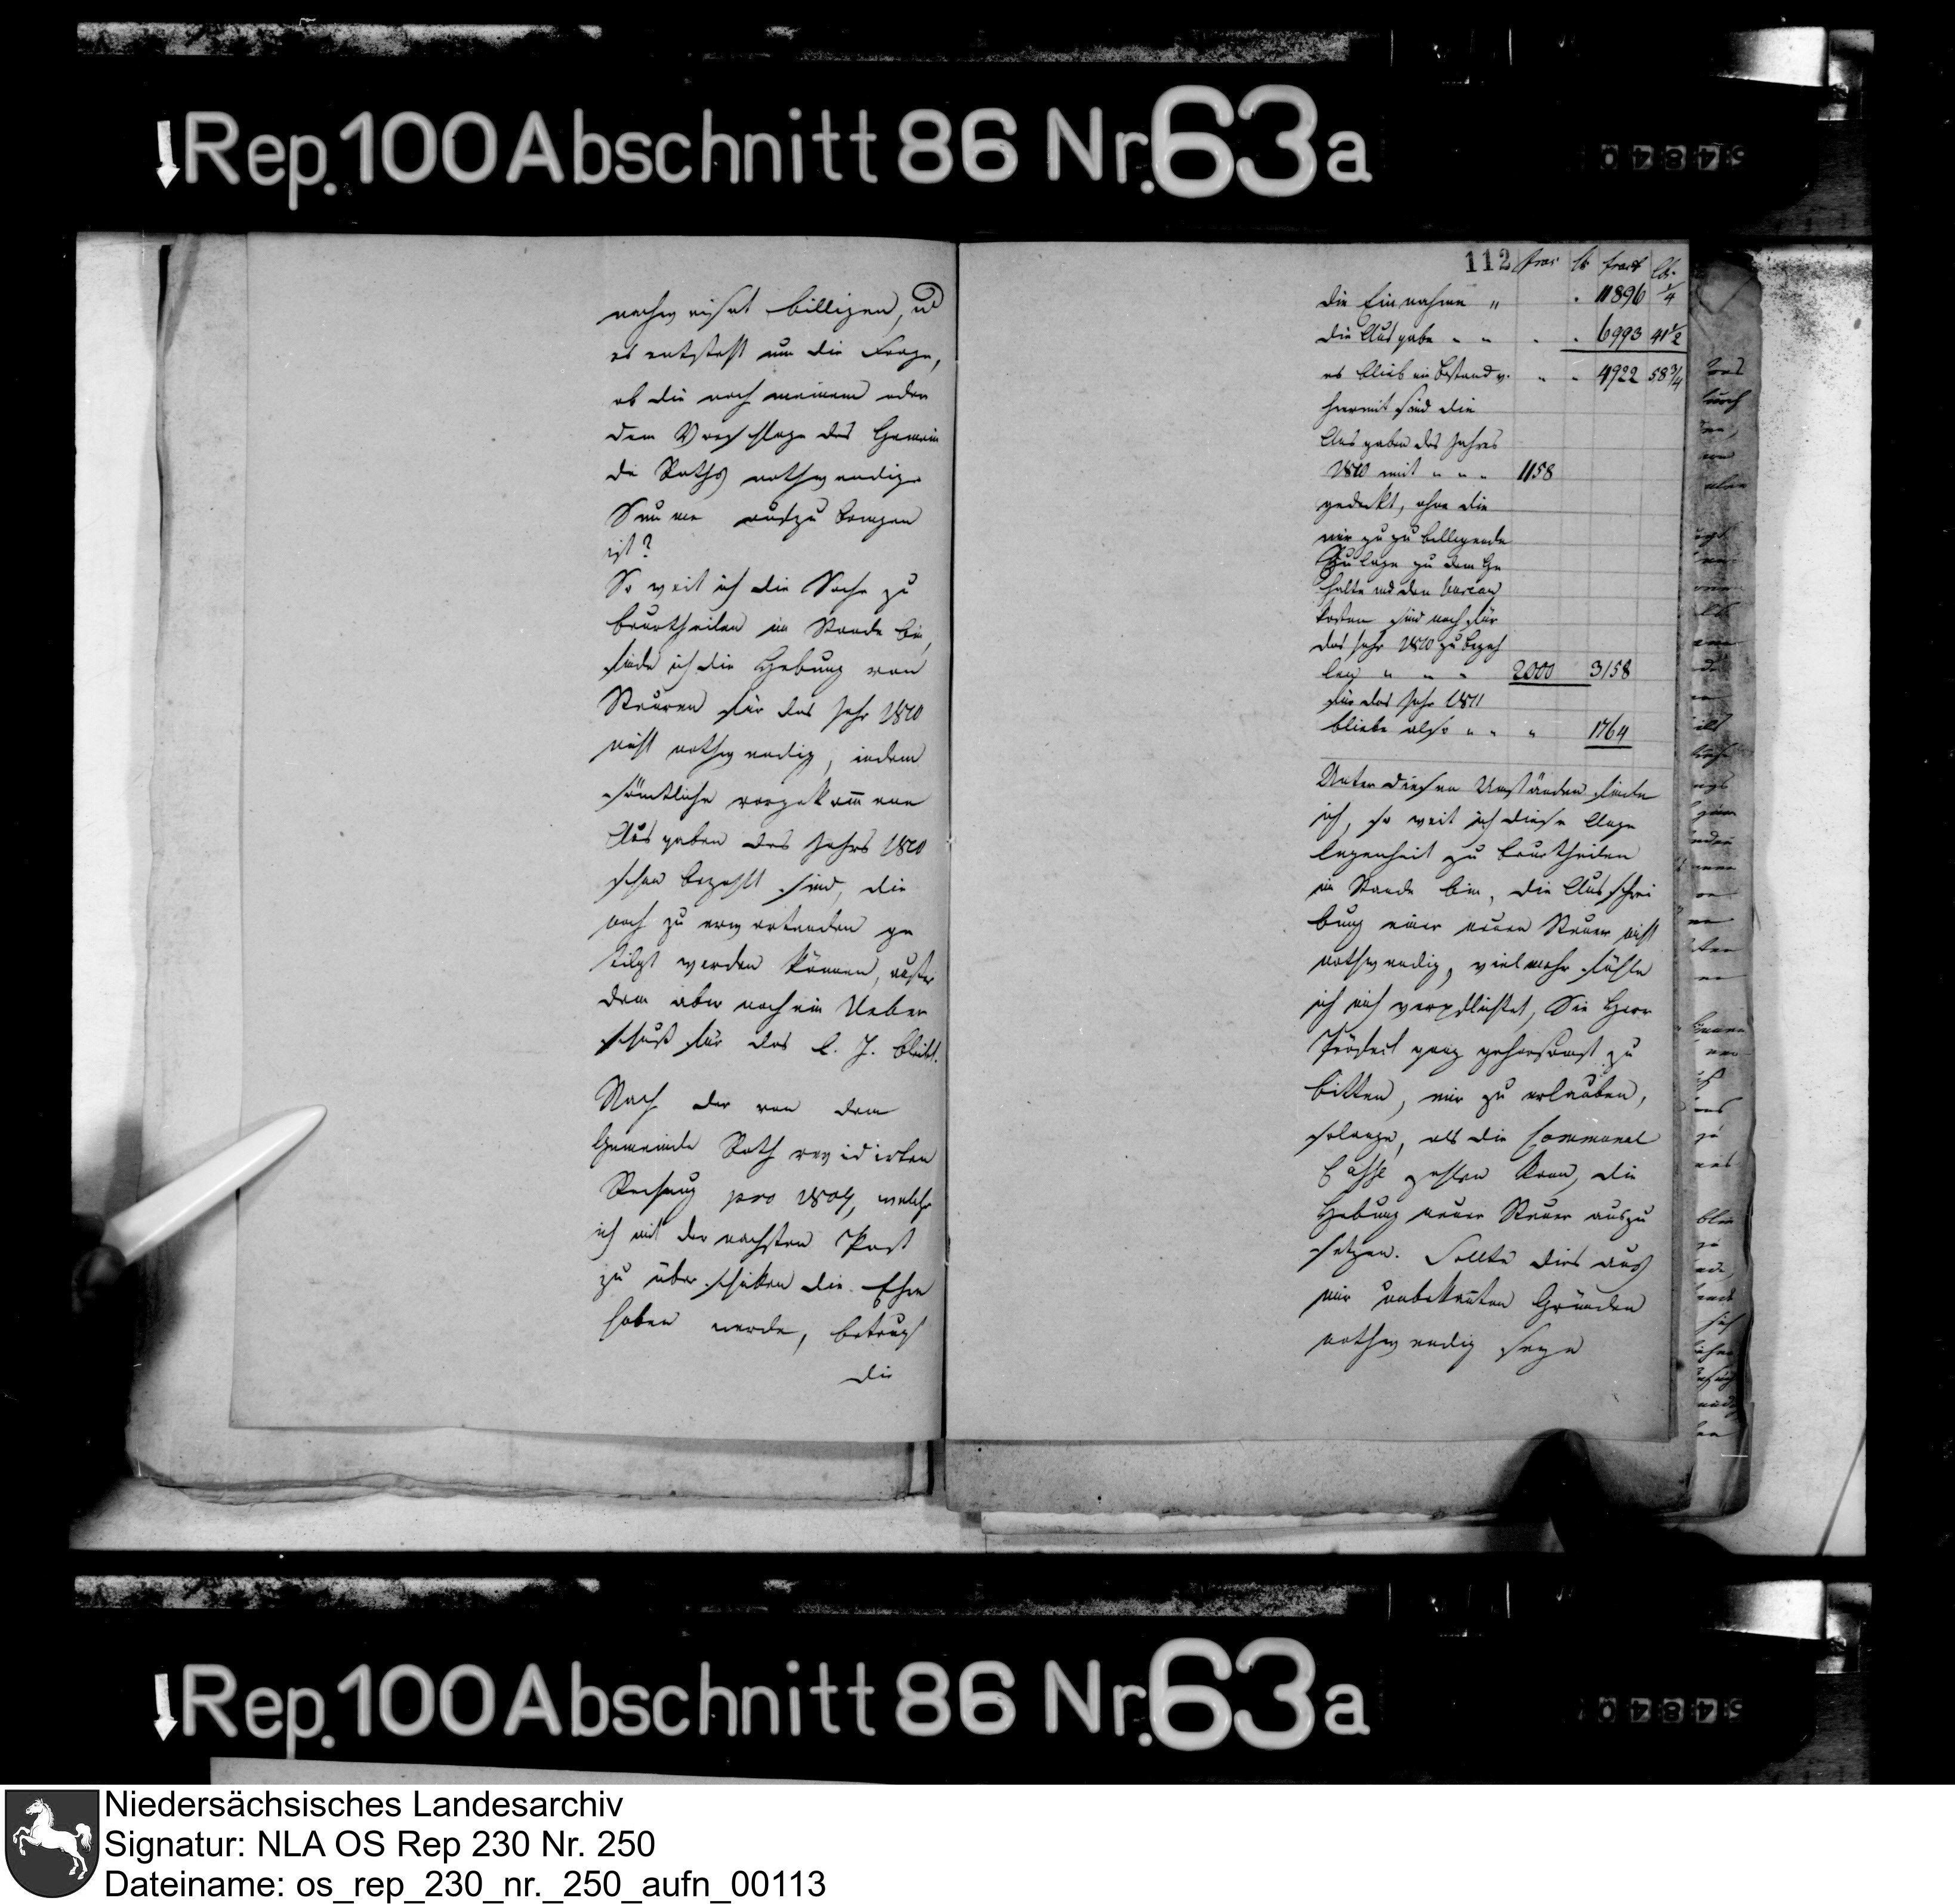 Rep. 100 Abschnitt 86 Nr. 63a
54840
nachweiset billigen, u
es entsteht nun die Frage,
ob die nach meinem oder
dem Vorschlage des Gemein
de Raths nothwendige
Summe auszubringen
ist?
So weit ich die Sache zu
beurtheilen im Stande bin,
finde ich die Hebung von
Steuren für das Jahr 1810
nicht nothwendig, indem
sämtliche vorgekom̅ene
Ausgaben des Jahrs 1810
schon bezahlt sind, die
noch zu erwartenden ge
tilgt werden können, außer
dem aber noch ein Ueber
schuß für das l. J. bleibt.
Nach der von dem
Gemeinde Rath revidirten
Rechnung pro 1809, welche
ich mit der nächsten Post
zu überschicken die Ehre
haben werde, betrug
die
112
die Einnahme " . 11896 1/4
die Ausgabe " " . . 6993 41 1/2
es blieb ein Bestand v. " " 4922 58 3/4
hiermit sind die
Ausgaben des Jahres
1810 mit " " " 1158
gedeckt, ohne die
mir zuzubilligende
Zulage zu dem Ge
halte und den Bureau
kosten sind noch für
das Jahr 1810 zu bezah
len " " " 2000 3158
für das Jahr 1811
bliebe also " " " 1764
Unter diesen Umständen finde
ich, so weit ich diese Ange
legenheit zu beurtheilen
im Stande bin, die Ausschrei
bung einer neuen Steuer nicht
nothwendig, vielmehr fühle
ich mich verpflichtet, Sie Herr
Präfect ganz gehorsamst zu
bitten, mir zu erlauben,
solange, als die Communal
Casse zahlen kann, die
Hebung neuer Steuer auszu
setzen. Sollte dies aus
mir unbekan̅ten Gründen
nothwendig seyn
Rep. 100 Abschnitt 86 Nr. 63a
54840
Niedersächsisches Landesarchiv
Signatur: NLA OS Rep 230 Nr. 250
Dateiname: os_rep_230_nr._250_aufn_00113